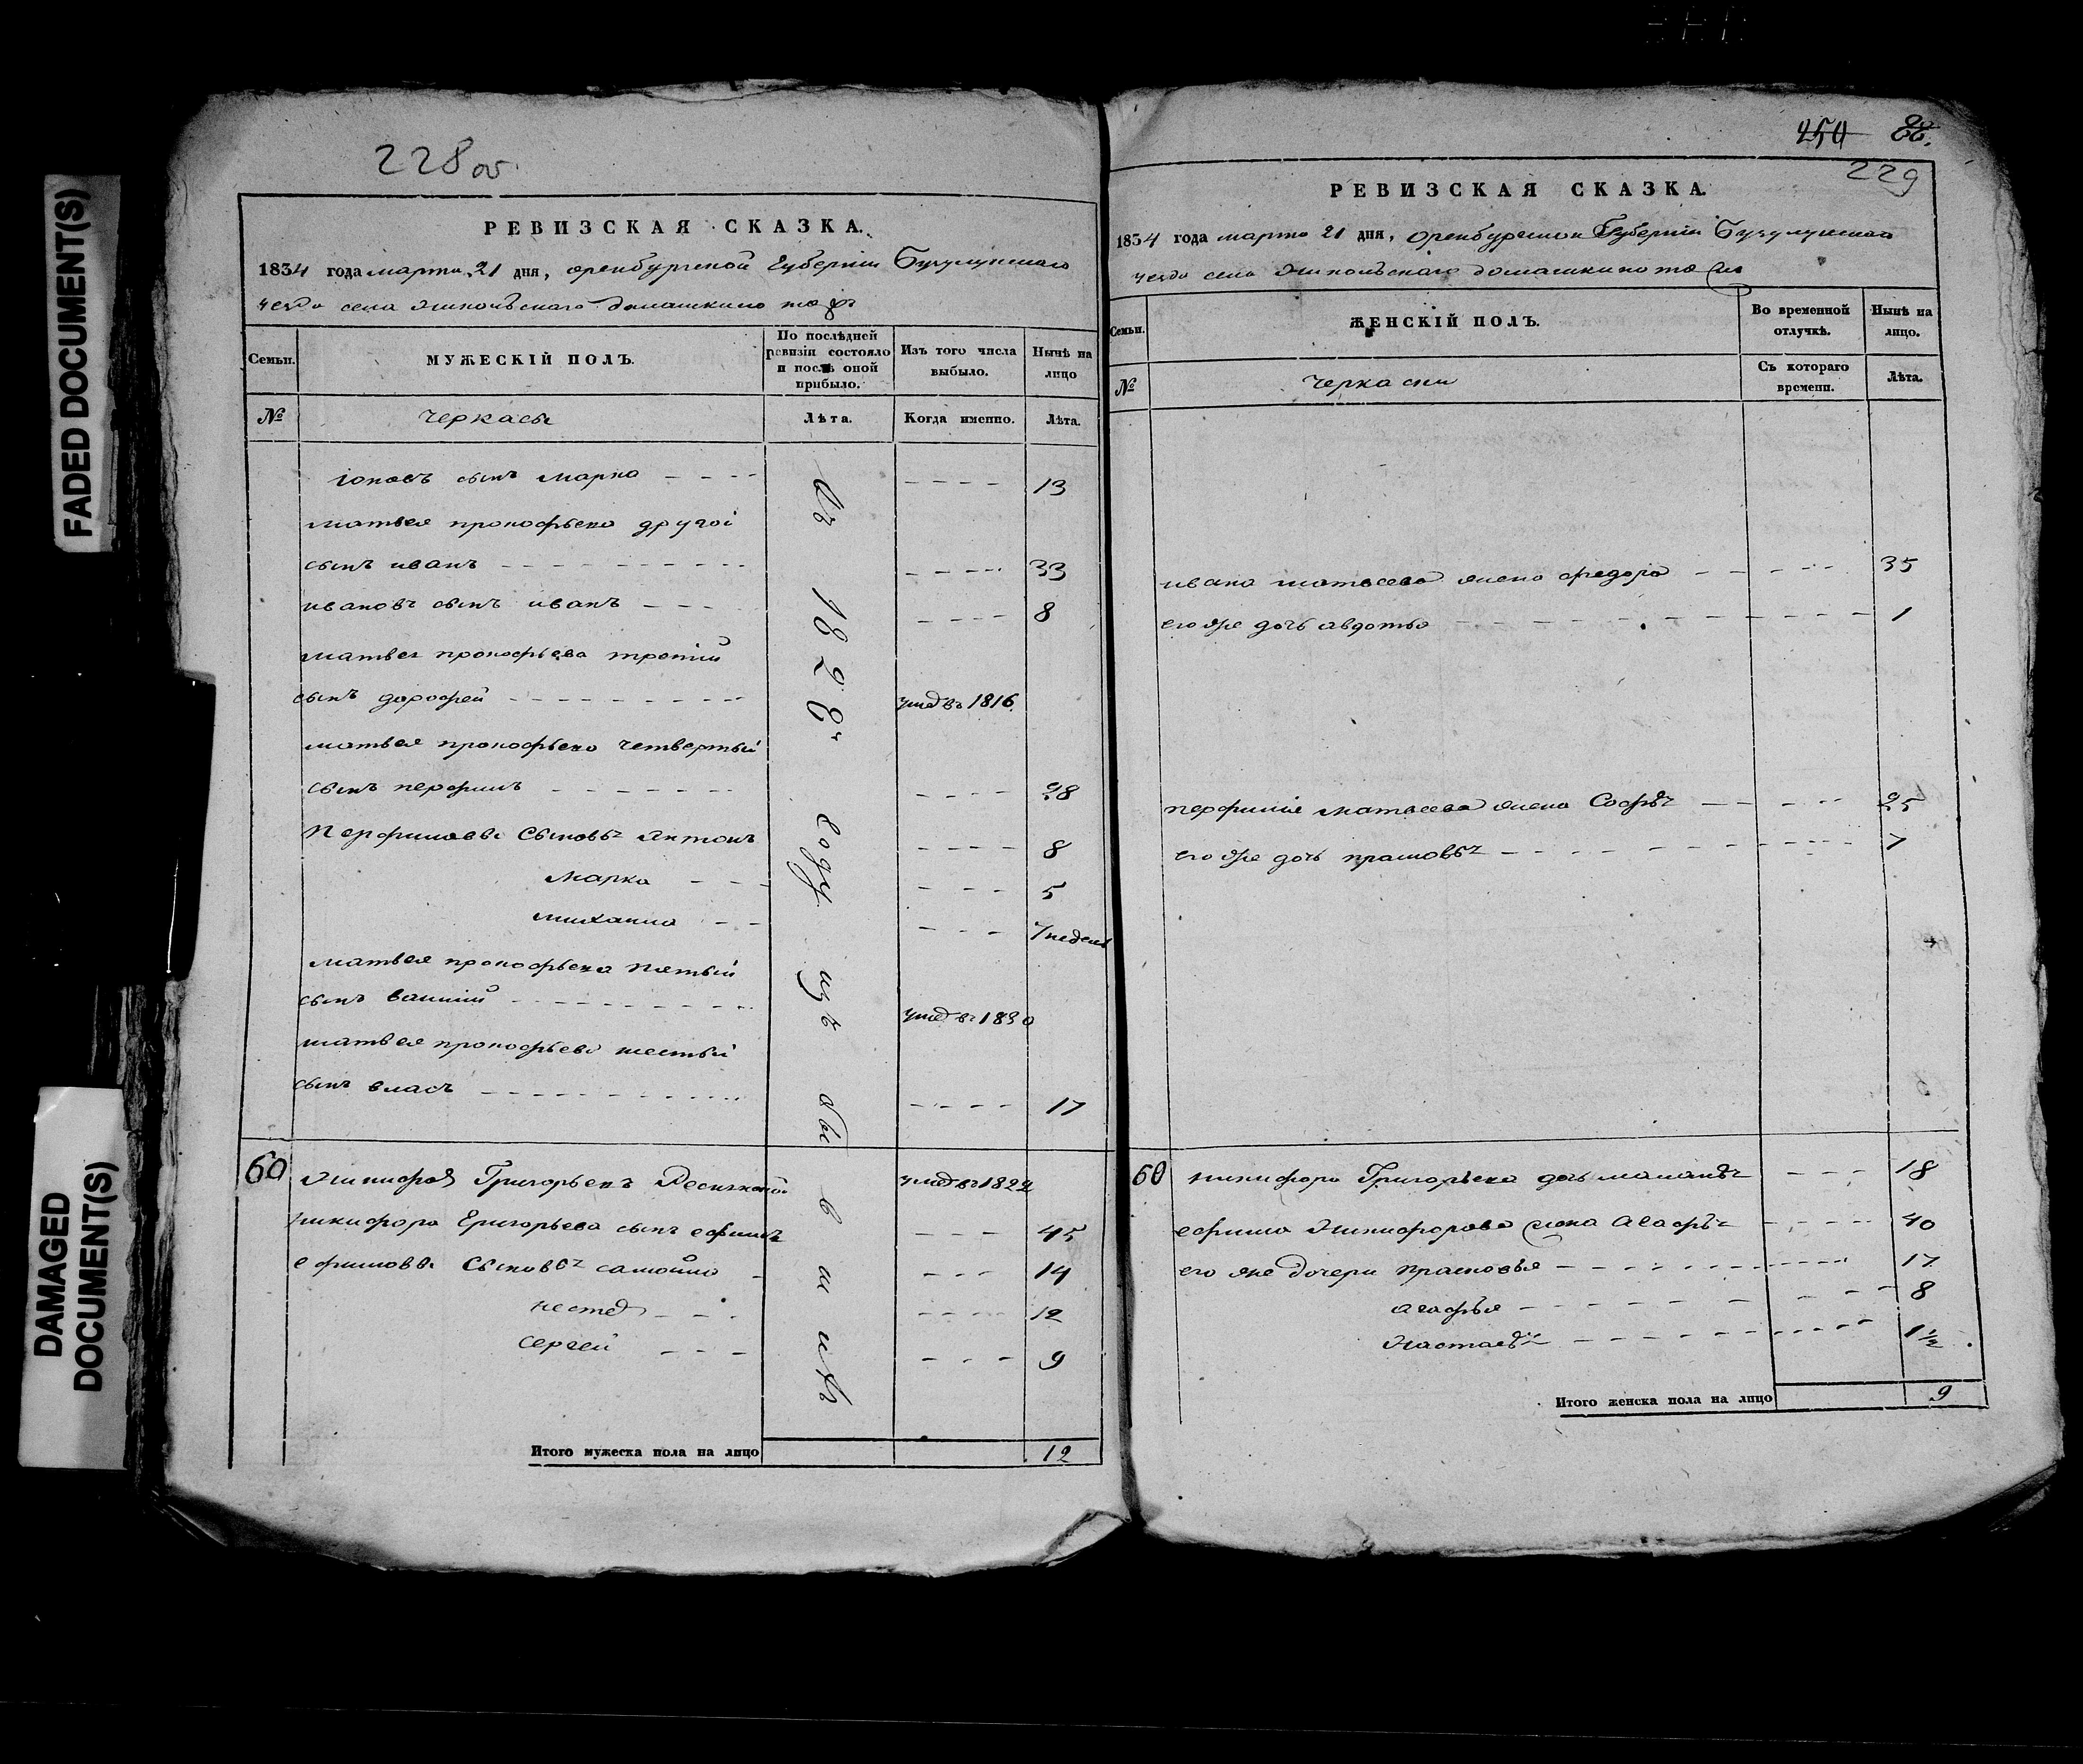 FADED DOCUMENT(S)
DAMAGED
DOCUMENT(S)
228 об
РЕВИЗСКАЯ СКАЗКА.
1834 года марта 21 дня, оренбургской Губерніи Бугульминскаго
уезда села Никольскаго домашкино то жъ
Семьи.
МУЖЕСКІЙ ПОЛЪ.
По послѣдней
ревизіи состояло
и послѣ оной
прибыло.
Изъ того числа
выбыло.
Нынѣ на
лицо
№
черкасы
Лѣта.
Когда именно.
Лѣта.
іоновъ сынъ марка - - - - 13
матвея прокофьева другоі
сынъ иванъ - - - - 33
ивановъ сынъ иванъ - - - - 8
матвея прокофьева третій
сынъ дорофей - - - - умер въ 1816
матвея прокофьева четвертый
сынъ перфилъ - - - - 28
Перфиловы Сыновья Антонъ - - - - 8
Марка - - - 5
михаила - - - 7 недель
матвея прокофьева пятый
сынъ василій - - - - умер въ 1830
матвея прокофьева шестый
сынъ власъ - - - - 17
въ 1828 году изъ
60 Никифоръ Григорьевъ умер въ 1822
никифора Григорьева сынъ ефимъ - - - 45
ефимовы Сыновья самойла - - - 14
нестер - - - 12
сергей - - - 9
Итого мужеска пола на лицо 12
254 88.
229
РЕВИЗСКАЯ СКАЗКА.
1834 года марта 21 дня, Оренбургской Губерніи Бугульминскаго
уезда села Никольскаго домашкино то жъ
Семьи.
ЖЕНСКІЙ ПОЛЪ.
Во временной
отлучкѣ.
Нынѣ на
лицо.
№
черкаски
Съ котораго
времени.
Лѣта.
ивана матвеева жена федора - - - - 35
его же дочь авдотья - - - - 1
перфилія матвеева жена Софья - - - - 25
его же дочь прасковья - - - - 7
60 никифора Григорьева дочь маланья - - - 18
ефима Никифорова жена Агафья - - - - 40
его же дочери прасковья - - - - 17
агафья - - - - 8
Настасья - - - - 1 1/2
Итого женска пола на лицо 9